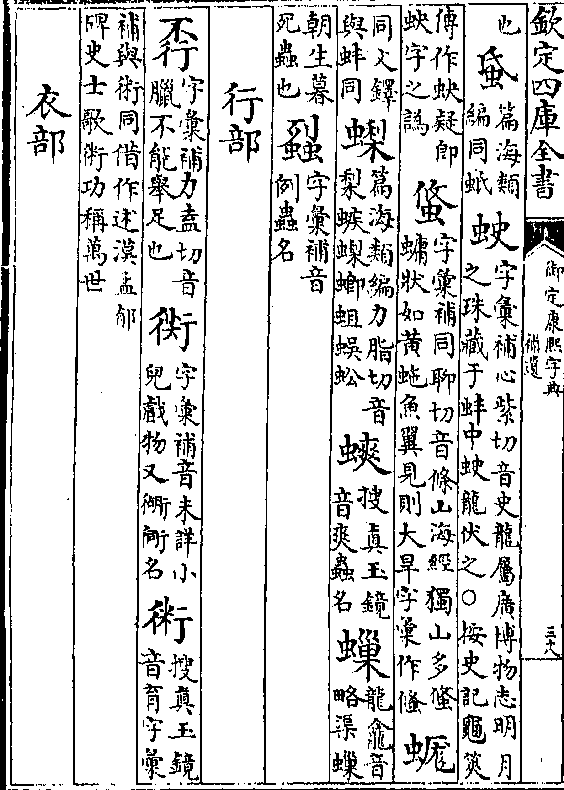 欽定四庫全書
御定康熙字典
補遺
三六
也 䖝 篇海類編同蚳 䖨 字彙補心紫切音史龍屬廣博物志明月之珠藏于蚌中䖨龍伏之○按史記龜筴
傳作蚗疑即蚗字之譌 䖺 字彙補同聊切音條山海經獨山多䖺䗤狀如黃蛇魚翼見則大旱字彙作䖺
同文鐸與蚌同 篇海類編力脂切音梨螏蟍螂蛆蜈蚣 䗮 搜真玉鏡音爽蟲名 龍龕音略渠
朝生暮死蟲也 字彙補音例蟲名
行部
字彙補力盍切音臘不能舉足也 字彙補音未詳小兒戲物又 名 搜真玉鏡音育字彙
補與術同借作述漢孟郁碑史士歌術功稱萬世
衣部